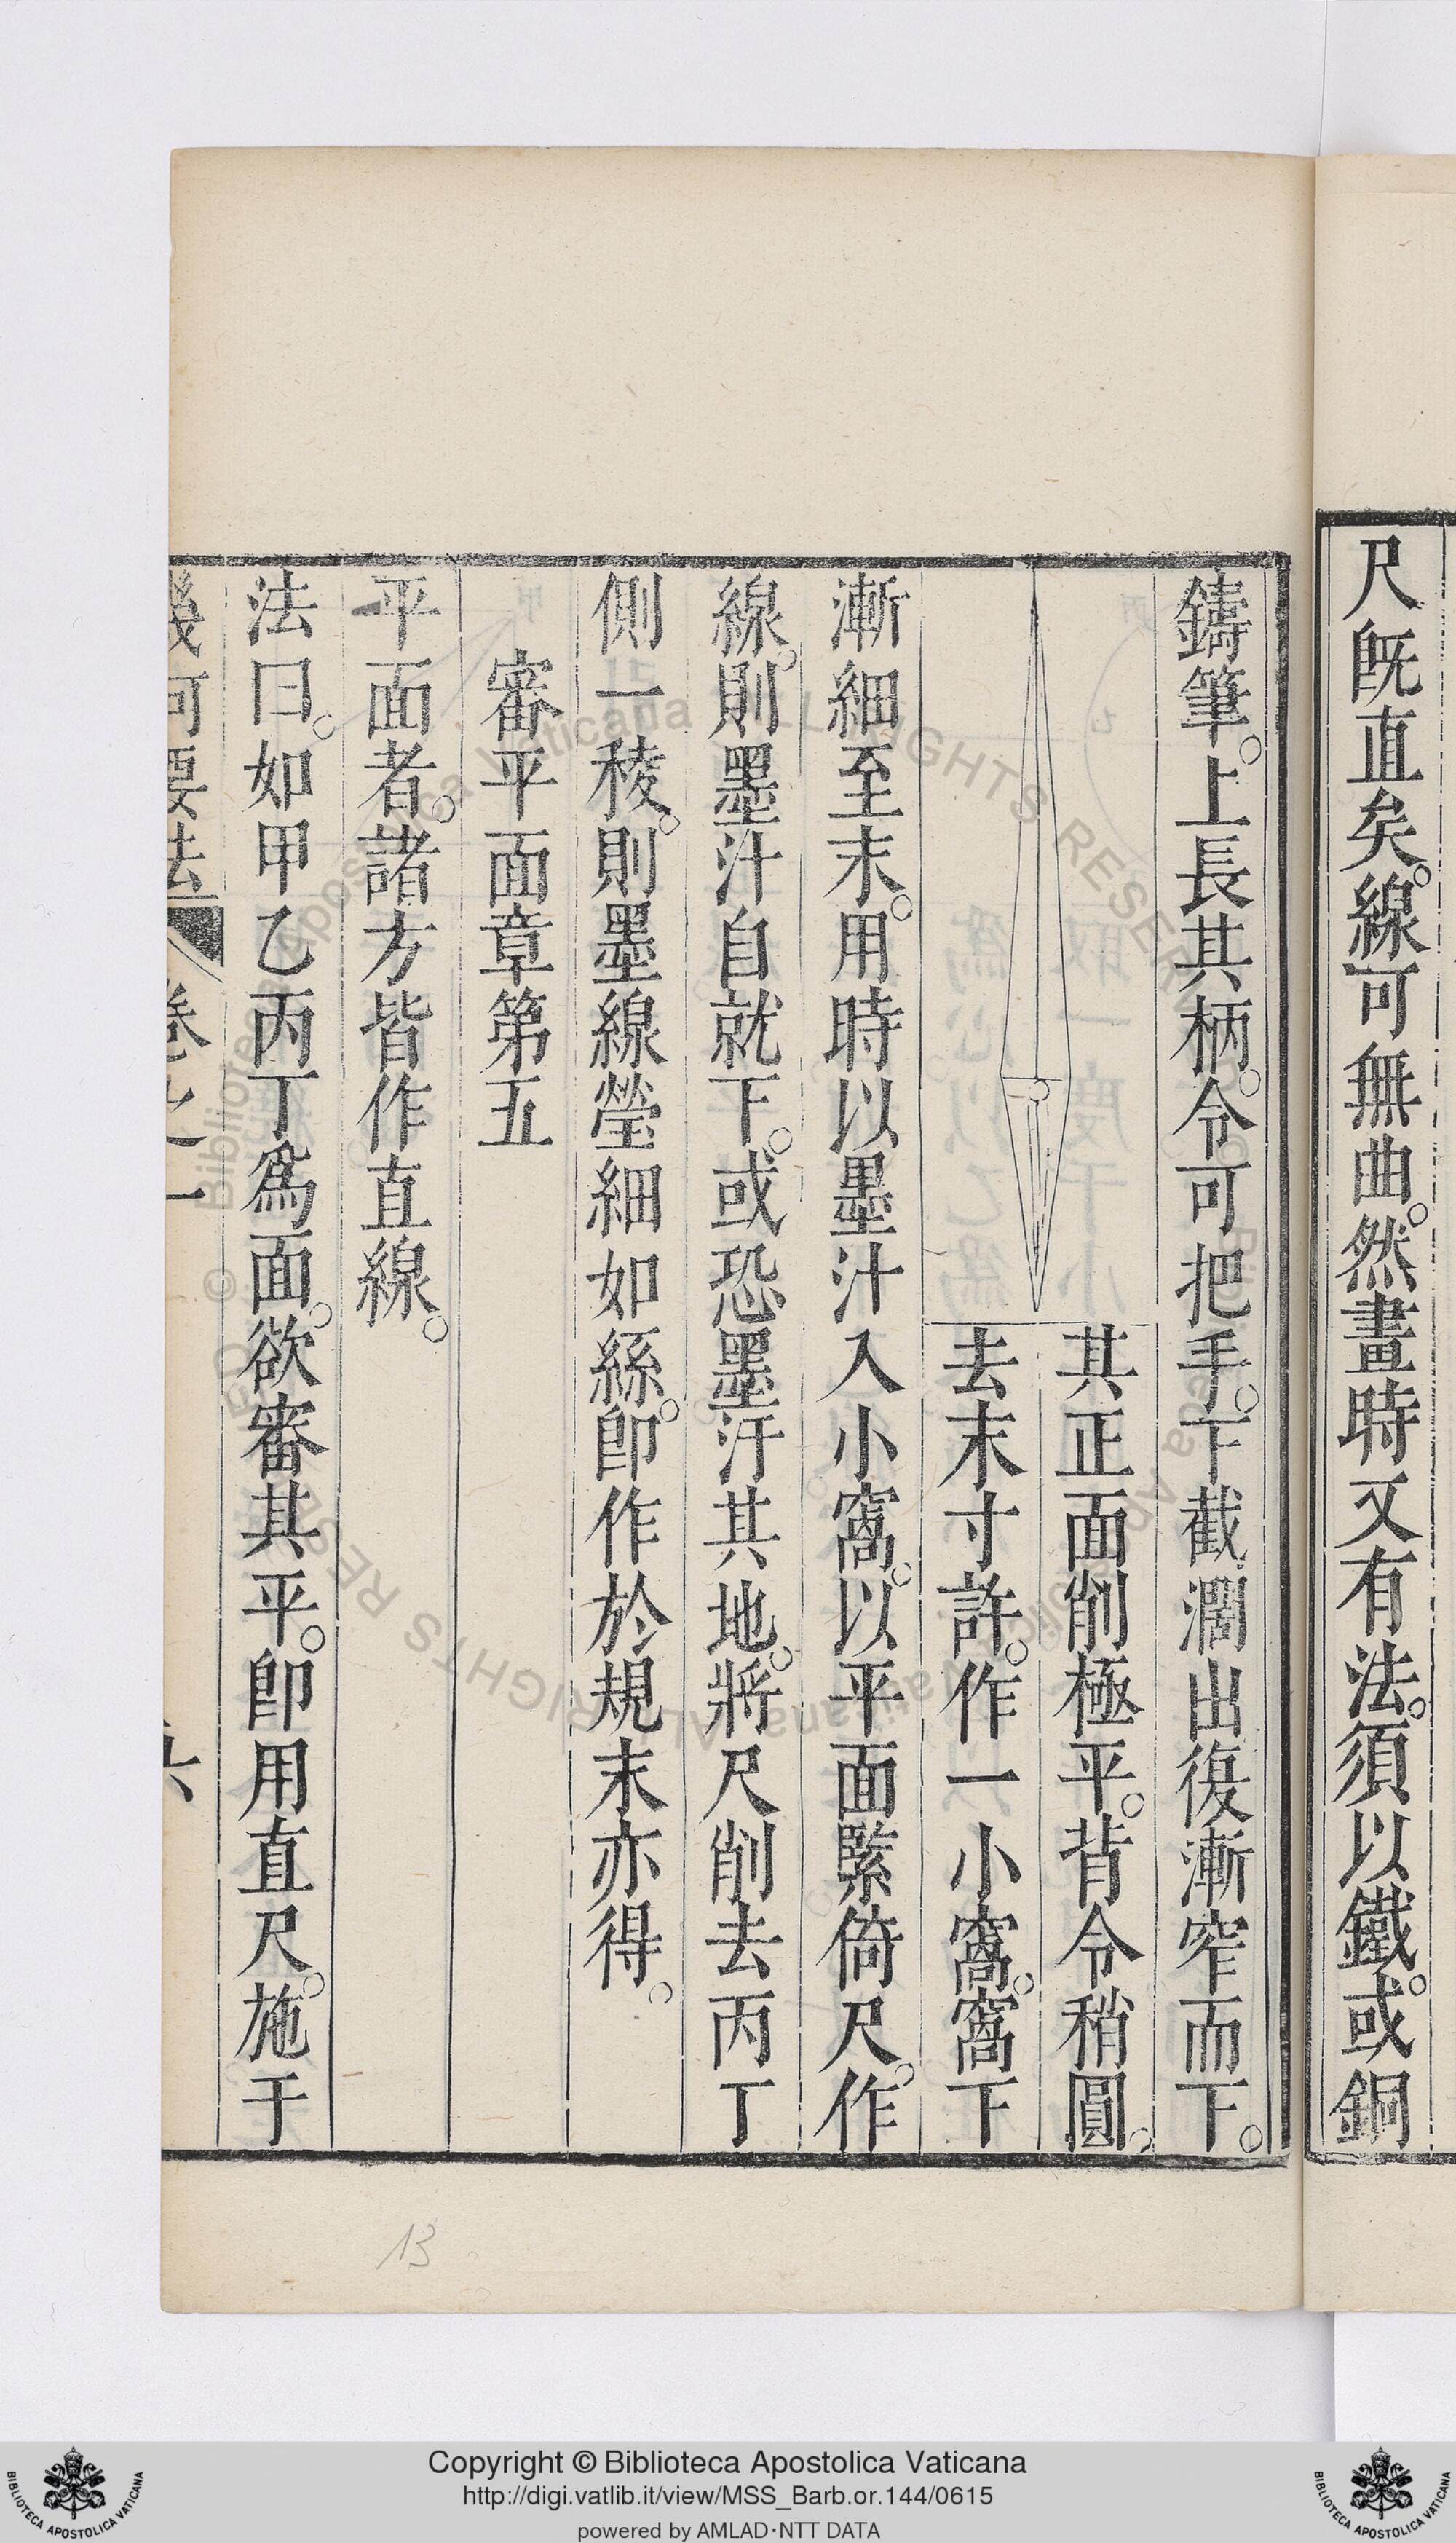 尺既直矣。線可無曲。然畫時又有法。須以鐵。或銅
鑄筆。上長其柄。令可把手。下截濶出復漸窄而下。
其正面削極平。背令稍圓。
去末寸許。作一小窩。窩下
漸細至末。用時以墨汁入小窩。以平面緊倚尺。作
線。則墨汁自就下。或恐墨汙其地。將尺削去丙丁
側一稜。則墨線瑩細如絲。卽作於規末亦得。
審平面章第五
平面者。諸方皆作直線。
法曰。如甲乙丙丁爲面。欲審其平。卽用直尺。施于
幾何要法 卷之一 六
13
Copyright © Biblioteca Apostolica Vaticana
http://digi.vatlib.it/view/MSS_Barb.or.144/0615
powered by AMLAD·NTT DATA
BIBLIOTECA APOSTOLICA VATICANA
BIBLIOTECA APOSTOLICA VATICANA